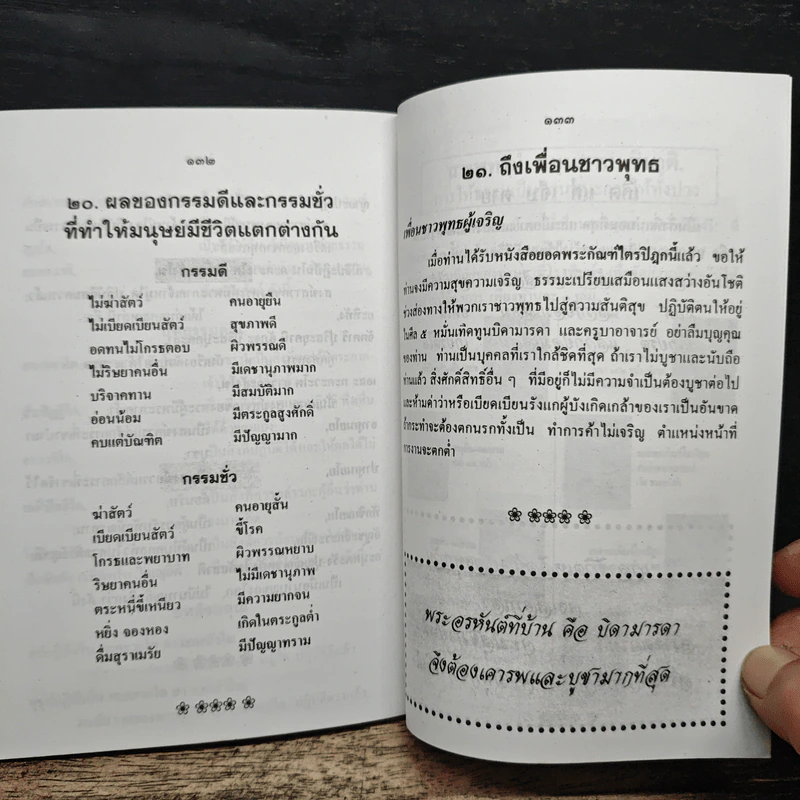 ๑๓๒
๒๐. ผลของกรรมดีและกรรมชั่ว
ที่ทำให้มนุษย์มีชีวิตแตกต่างกัน
กรรมดี
ไม่ฆ่าสัตว์ คนอายุยืน
ไม่เบียดเบียนสัตว์ สุขภาพดี
อดทนไม่โกรธตอบ ผิวพรรณดี
ไม่ริษยาคนอื่น มีเดชานุภาพมาก
บริจาคทาน มีสมบัติมาก
อ่อนน้อม มีตระกูลสูงศักดิ์
คบแต่บัณฑิต มีปัญญามาก
กรรมชั่ว
ฆ่าสัตว์ คนอายุสั้น
เบียดเบียนสัตว์ ขี้โรค
โกรธและพยาบาท ผิวพรรณหยาบ
ริษยาคนอื่น ไม่มีเดชานุภาพ
ตระหนี่ขี้เหนียว มีความยากจน
หยิ่ง จองหอง เกิดในตระกูลต่ำ
ดื่มสุราเมรัย มีปัญญาทราม
๑๓๓
๒๑. ถึงเพื่อนชาวพุทธ
เพื่อนชาวพุทธผู้เจริญ
เมื่อท่านได้รับหนังสือยอดพระกัณฑ์ไตรปิฎกนี้แล้ว ขอให้
ท่านจงมีความสุขความเจริญ ธรรมะเปรียบเสมือนแสงสว่างอันโชติ
ช่วงส่องทางให้พวกเราชาวพุทธไปสู่ความสันติสุข ปฏิบัติตนให้อยู่
ในศีล ๕ หมั่นเทิดทูนบิดามารดา และครูบาอาจารย์ อย่าลืมบุญคุณ
ของท่าน ท่านเป็นบุคคลที่เราใกล้ชิดที่สุด ถ้าเราไม่บูชาและนับถือ
ท่านแล้ว สิ่งศักดิ์สิทธิ์อื่น ๆ ที่มีอยู่ก็ไม่มีความจำเป็นต้องบูชาต่อไป
และห้ามด่าว่าหรือเบียดเบียนรังแกผู้บังเกิดเกล้าของเราเป็นอันขาด
ถ้ากระทำจะต้องตกนรกทั้งเป็น ทำการค้าไม่เจริญ ตำแหน่งหน้าที่
การงานจะตกต่ำ
พระอรหันต์ที่บ้าน คือ บิดามารดา
จึงต้องเคารพและบูชามากที่สุด